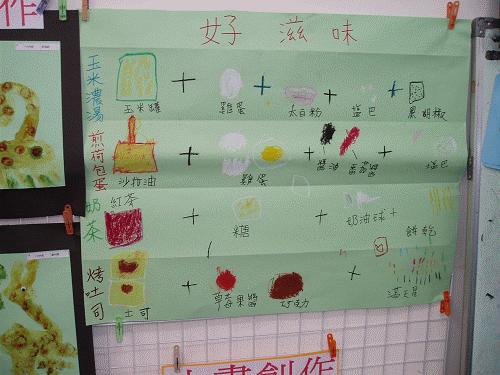 作
好滋味
玉米濃湯
玉米罐 + 雞蛋 + 太白粉 + 鹽巴 + 黑胡椒
煎荷包蛋
沙拉油 + 雞蛋 + 醬油 番茄醬 + 鹽巴
奶茶
紅茶 + 糖 + 奶油球 + 餅乾
烤吐司
土司 + 草莓果醬 巧克力 + 滿天星
畫創作